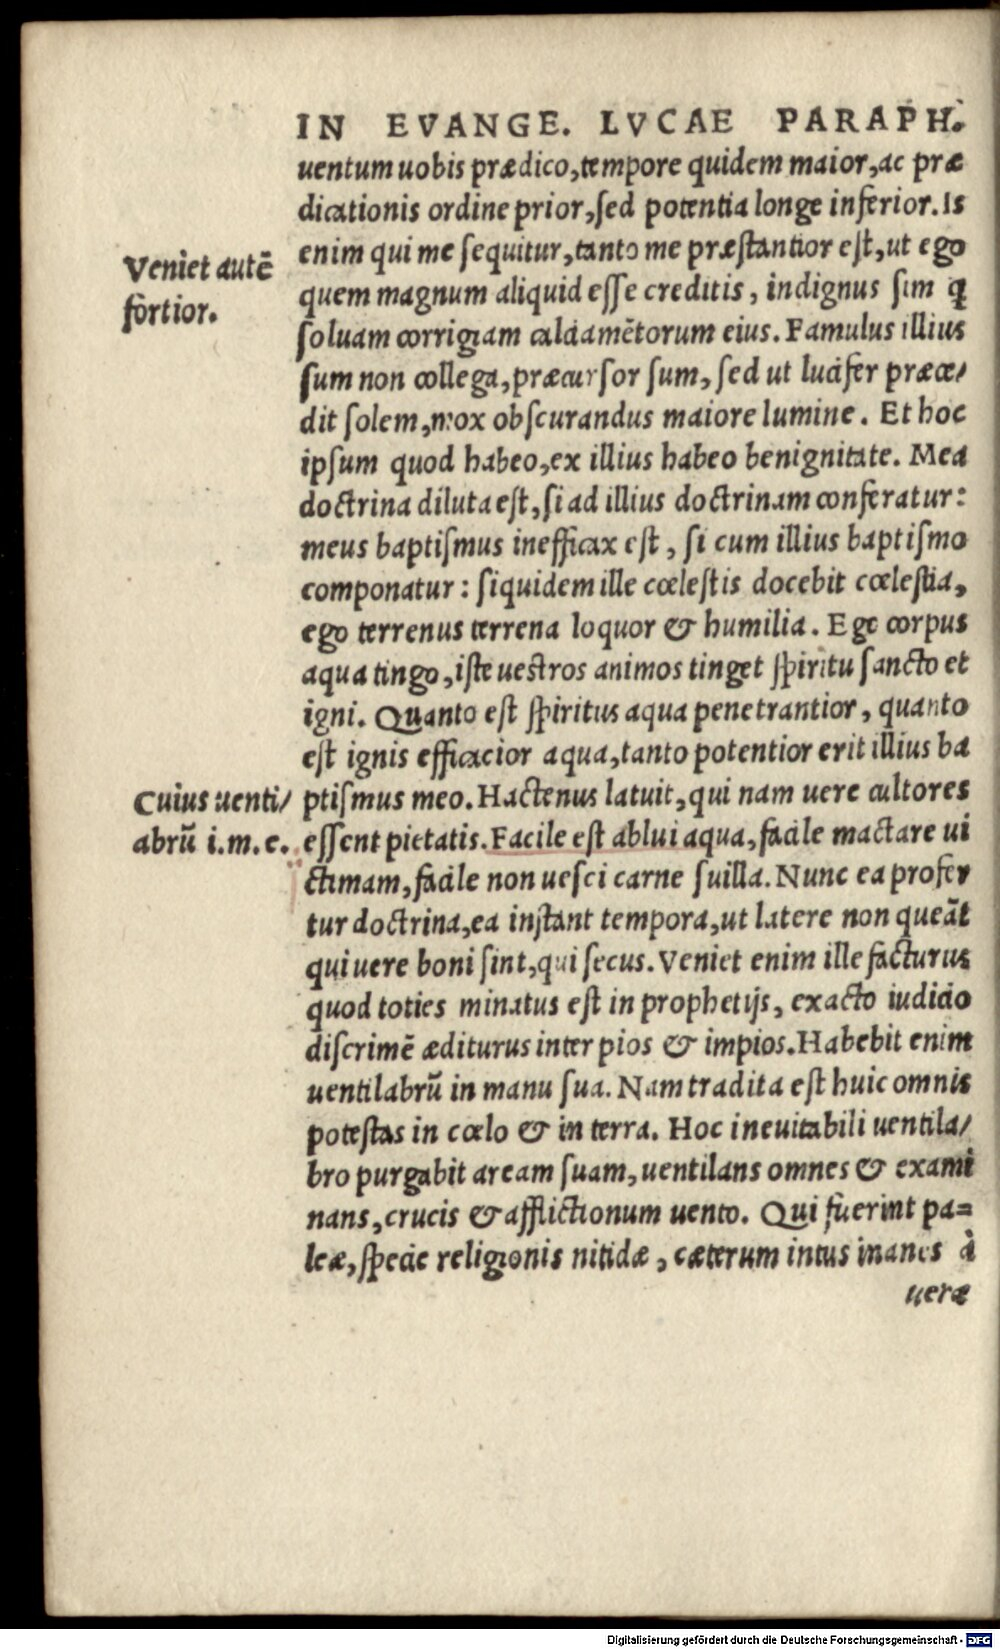 IN EVANGE. LVCAE PARAPH.
uentum uobis prædico, tempore quidem maior, ac præ
dicationis ordine prior, sed potentia longe inferior. Is
enim qui me sequitur, tanto me præstantior est, ut ego
Veniet autē
fortior.
quem magnum aliquid esse creditis, indignus sim ꝗ
soluam corrigiam calciamētorum eius. Famulus illius
sum non collega, præcursor sum, sed ut lucifer præce/
dit solem, mox obscurandus maiore lumine. Et hoc
ipsum quod habeo, ex illius habeo benignitate. Mea
doctrina diluta est, si ad illius doctrinam conferatur:
meus baptismus inefficax est, si cum illius baptismo
componatur: siquidem ille cœlestis docebit cœlestia,
ego terrenus terrena loquor & humilia. Ego corpus
aqua tingo, iste uestros animos tinget spiritu sancto et
igni. Quanto est spiritus aqua penetrantior, quanto
est ignis efficacior aqua, tanto potentior erit illius ba
Cuius uenti/
abrū i.m.e.
ptismus meo. Hactenus latuit, qui nam uere cultores
essent pietatis. Facile est ablui aqua, facile mactare ui
ctimam, facile non uesci carne suilla. Nunc ea profer
tur doctrina, ea instant tempora, ut latere non queāt
qui uere boni sint, qui secus. Veniet enim ille facturus
quod toties minatus est in prophetijs, exacto iudicio
discrimē æditurus inter pios & impios. Habebit enim
uentilabrū in manu sua. Nam tradita est huic omnis
potestas in cœlo & in terra. Hoc ineuitabili uentila/
bro purgabit aream suam, uentilans omnes & exami
nans, crucis & afflictionum uento. Qui fuerint pa=
leæ, specie religionis nitidæ, cæterum intus inanes à
ueræ
Digitalisierung gefördert durch die Deutsche Forschungsgemeinschaft - DFG